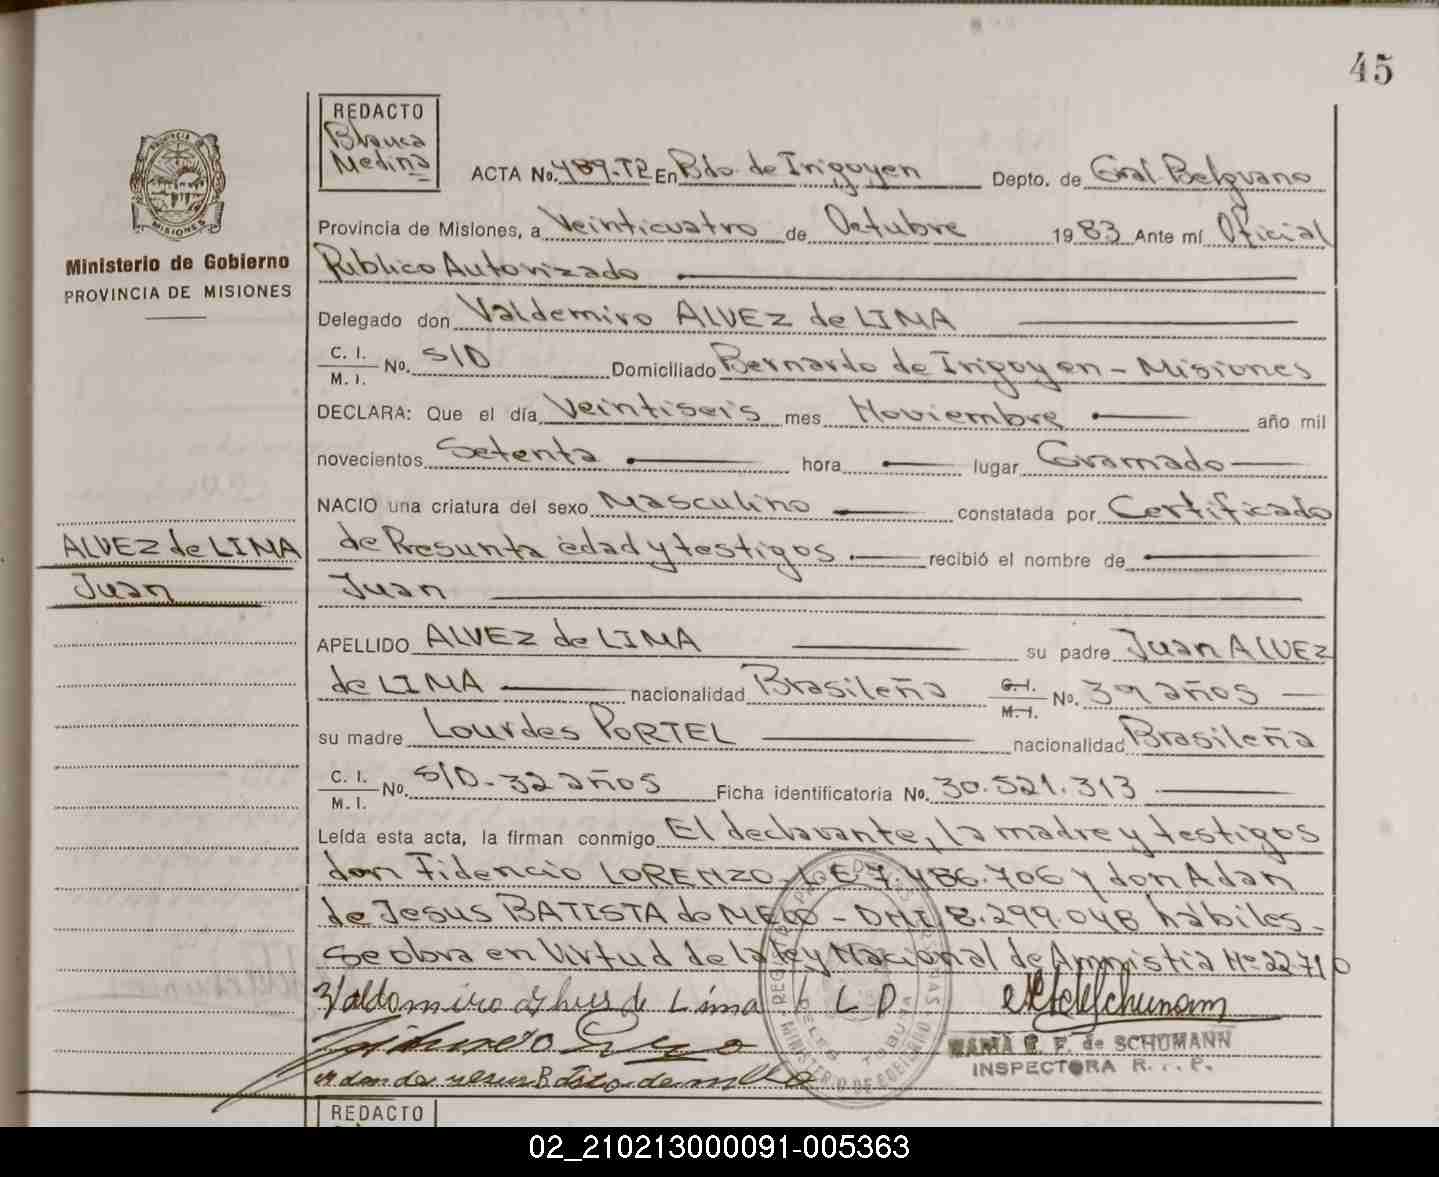 45
REDACTO
Blanca
Medina
ACTA No. 489-T2 En Bdo. de Irigoyen Depto. de Gral. Belgrano
Provincia de Misiones, a Veinticuatro de Octubre 1983 Ante mí Oficial
Público Autorizado
Delegado don Valdemiro ALVEZ de LIMA
C. I.
M. I. No. S/D Domiciliado Bernardo de Irigoyen - Misiones
DECLARA: Que el día Veintiseis mes Noviembre año mil
novecientos Setenta hora lugar Gramado
NACIO una criatura del sexo Masculino constatada por Certificado
de Presunta edad y testigos recibió el nombre de
Juan
APELLIDO ALVEZ de LIMA su padre Juan ALVEZ
de LIMA nacionalidad Brasileña C. I. M. I. No. 39 años
su madre Lourdes PORTEL nacionalidad Brasileña
C. I.
M. I. No. S/D - 32 años Ficha identificatoria No. 30.521.313
Leída esta acta, la firman conmigo El declarante, la madre y testigos
don Fidencio LORENZO - L E 7.486.706 y don Adan
de Jesus BATISTA de MELO - DNI 8.299.048 hábiles.
Se obra en Virtud de la Ley Nacional de Amnistia Nº 22.710
de Lima L L D
MARIA E. F. de SCHUMANN
INSPECTORA R. . . P.
Ministerio de Gobierno
PROVINCIA DE MISIONES
ALVEZ de LIMA
Juan
REDACTO
02_210213000091-005363